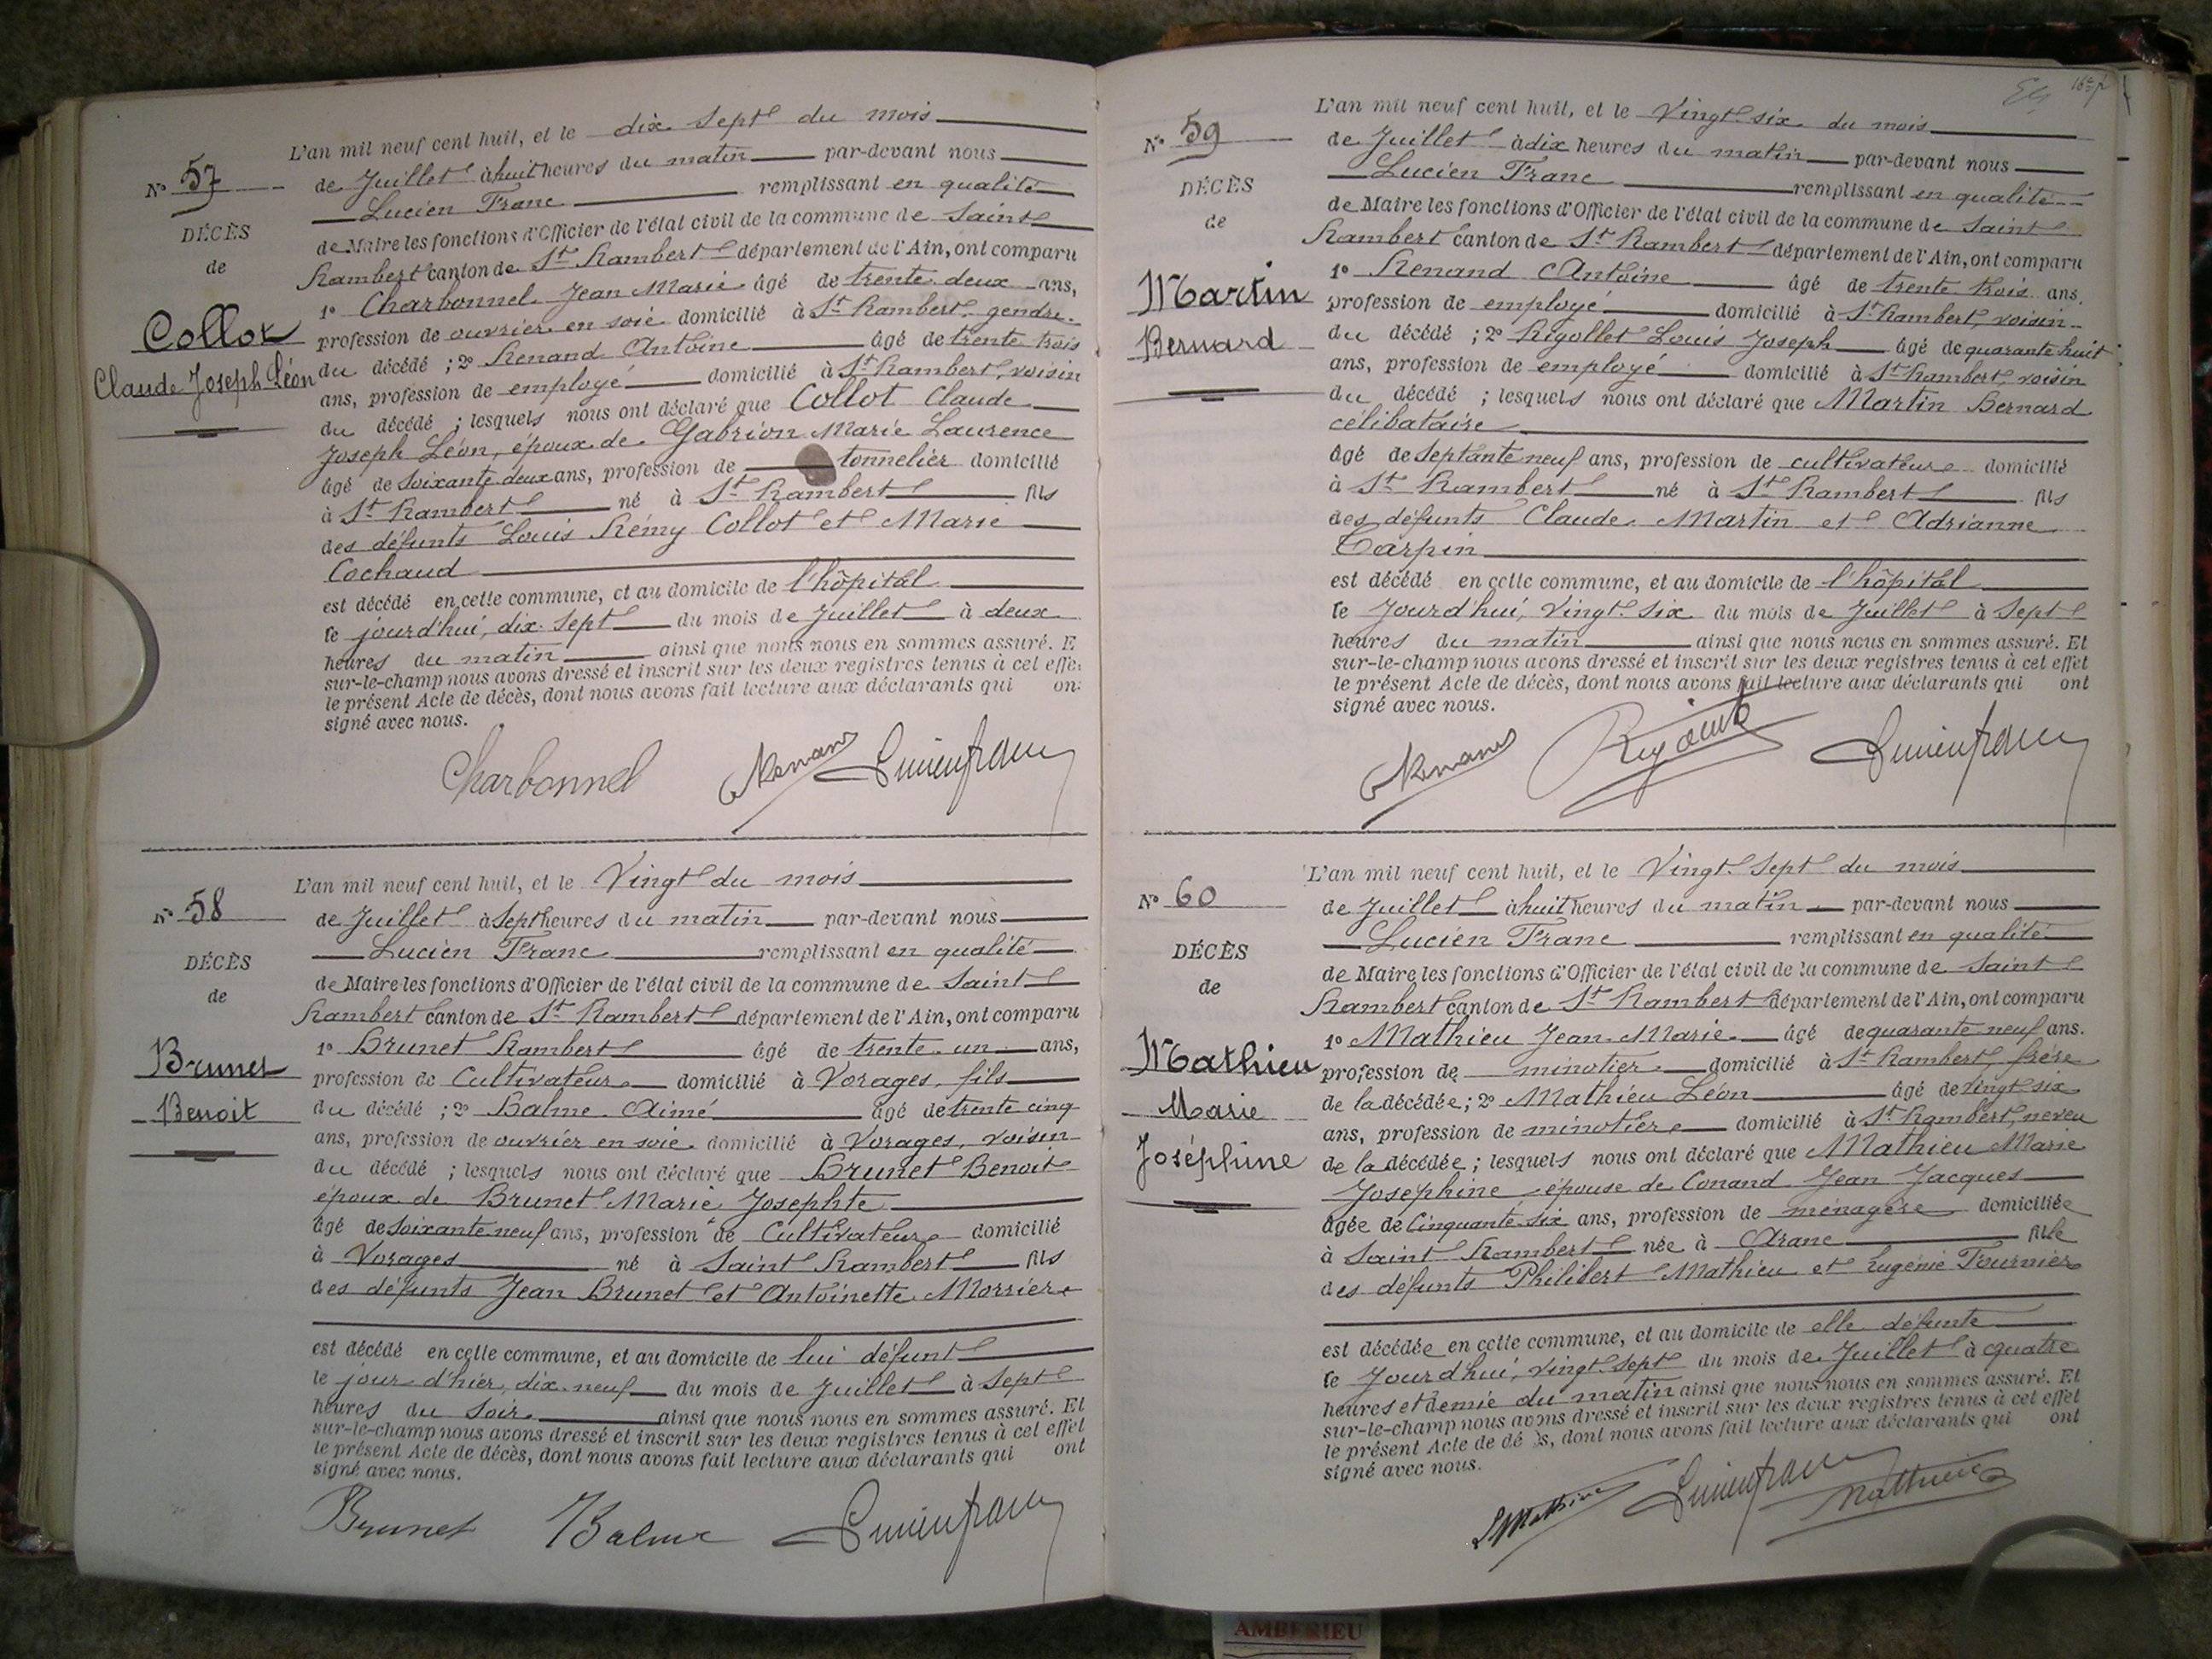 L'an mil neuf cent huit, et le dix Sept du mois
N° 57
de Juillet à huit heures du matin par-devant nous
Lucien Franc remplissant en qualité
DÉCÈS
de Maire les fonctions d'Officier de l'état civil de la commune de Saint
de
Rambert canton de St Rambert département de l'Ain, ont comparu
1° Charbonnel Jean Marie âgé de trente deux ans,
Collot
profession de ouvrier en soie domicilié à St Rambert, gendre
du décédé ; 2° Renand Antoine âgé de trente trois
Claude Joseph Léon
ans, profession de employé domicilié à St Rambert, voisin
du décédé ; lesquels nous ont déclaré que Collot Claude
Joseph Léon, époux de Gabrion Marie Laurence
âgé de Soixante deux ans, profession de tonnelier domicilié
à St Rambert né à St Rambert fils
des défunts Louis Rémy Collot et Marie
Cochaud
est décédé en cette commune, et au domicile de l'hôpital
le jourd'hui, dix Sept du mois de Juillet à deux
heures du matin ainsi que nous nous en sommes assuré. E
sur-le-champ nous avons dressé et inscrit sur les deux registres tenus à cet effe
le présent Acte de décès, dont nous avons fait lecture aux déclarants qui on
signé avec nous.
Charbonnel Renand Lucien Franc
L'an mil neuf cent huit, et le Vingt du mois
N° 58
de Juillet à Sept heures du matin par-devant nous
Lucien Franc remplissant en qualité
DÉCÈS
de Maire les fonctions d'Officier de l'état civil de la commune de Saint
de
Rambert canton de St Rambert département de l'Ain, ont comparu
1° Brunet Rambert âgé de trente un ans,
Brunet
profession de Cultivateur domicilié à Vorages, fils
Benoit
du décédé ; 2° Balme Aimé âgé de trente cinq
ans, profession de ouvrier en soie domicilié à Vorages, voisin
du décédé ; lesquels nous ont déclaré que Brunet Benoit
époux de Brunet Marie Josephte
âgé de soixante neuf ans, profession de Cultivateur domicilié
à Vorages né à Saint Rambert fils
des défunts Jean Brunet et Antoinette Morrier
est décédé en cette commune, et au domicile de lui défunt
le jour d'hier, dix neuf du mois de Juillet à Sept
heures du Soir ainsi que nous nous en sommes assuré. Et
sur-le-champ nous avons dressé et inscrit sur les deux registres tenus à cet effet
le présent Acte de décès, dont nous avons fait lecture aux déclarants qui ont
signé avec nous.
Brunet Balme Lucien Franc
L'an mil neuf cent huit, et le Vingt six du mois
N° 59
de Juillet à dix heures du matin par-devant nous
Lucien Franc remplissant en qualité
DÉCÈS
de Maire les fonctions d'Officier de l'état civil de la commune de Saint
de
Rambert canton de St Rambert département de l'Ain, ont comparu
1° Renand Antoine âgé de trente trois ans,
Martin
profession de employé domicilié à St Rambert, voisin
Bernard
du décédé ; 2° Rigollet Louis Joseph âgé de quarante huit
ans, profession de employé domicilié à St Rambert, voisin
du décédé ; lesquels nous ont déclaré que Martin Bernard
célibataire
âgé de Septante neuf ans, profession de cultivateur domicilié
à St Rambert né à St Rambert fils
des défunts Claude Martin et Adrianne
Tarpin
est décédé en cette commune, et au domicile de l'hôpital
le Jourd'hui, Vingt six du mois de Juillet à Sept
heures du matin ainsi que nous nous en sommes assuré. Et
sur-le-champ nous avons dressé et inscrit sur les deux registres tenus à cet effet
le présent Acte de décès, dont nous avons fait lecture aux déclarants qui ont
signé avec nous.
Renand Lucien Franc
L'an mil neuf cent huit, et le Vingt Sept du mois
N° 60
de Juillet à huit heures du matin par-devant nous
Lucien Franc remplissant en qualité
DÉCÈS
de Maire les fonctions d'Officier de l'état civil de la commune de Saint
de
Rambert canton de St Rambert département de l'Ain, ont comparu
1° Mathieu Jean Marie âgé de quarante neuf ans.
Mathieu
profession de minotier domicilié à St Rambert, frère
de la décédée ; 2° Mathieu Léon âgé de Vingt six
Marie
ans, profession de minotier domicilié à St Rambert, neveu
Joséphine
de la décédée ; lesquels nous ont déclaré que Mathieu Marie
Joséphine, épouse de Conand Jean Jacques
âgée de Cinquante six ans, profession de ménagère domiciliée
à Saint Rambert née à Aranc fille
des défunts Philibert Mathieu et Eugénie Fournier
est décédée en cette commune, et au domicile de elle défunte
le Jourd'hui, Vingt Sept du mois de Juillet à quatre
heures et demie du matin ainsi que nous nous en sommes assuré. Et
sur-le-champ nous avons dressé et inscrit sur les deux registres tenus à cet effet
le présent Acte de dé ès, dont nous avons fait lecture aux déclarants qui ont
signé avec nous.
L Mathieu Lucien Franc Mathieu
AMBERIEU